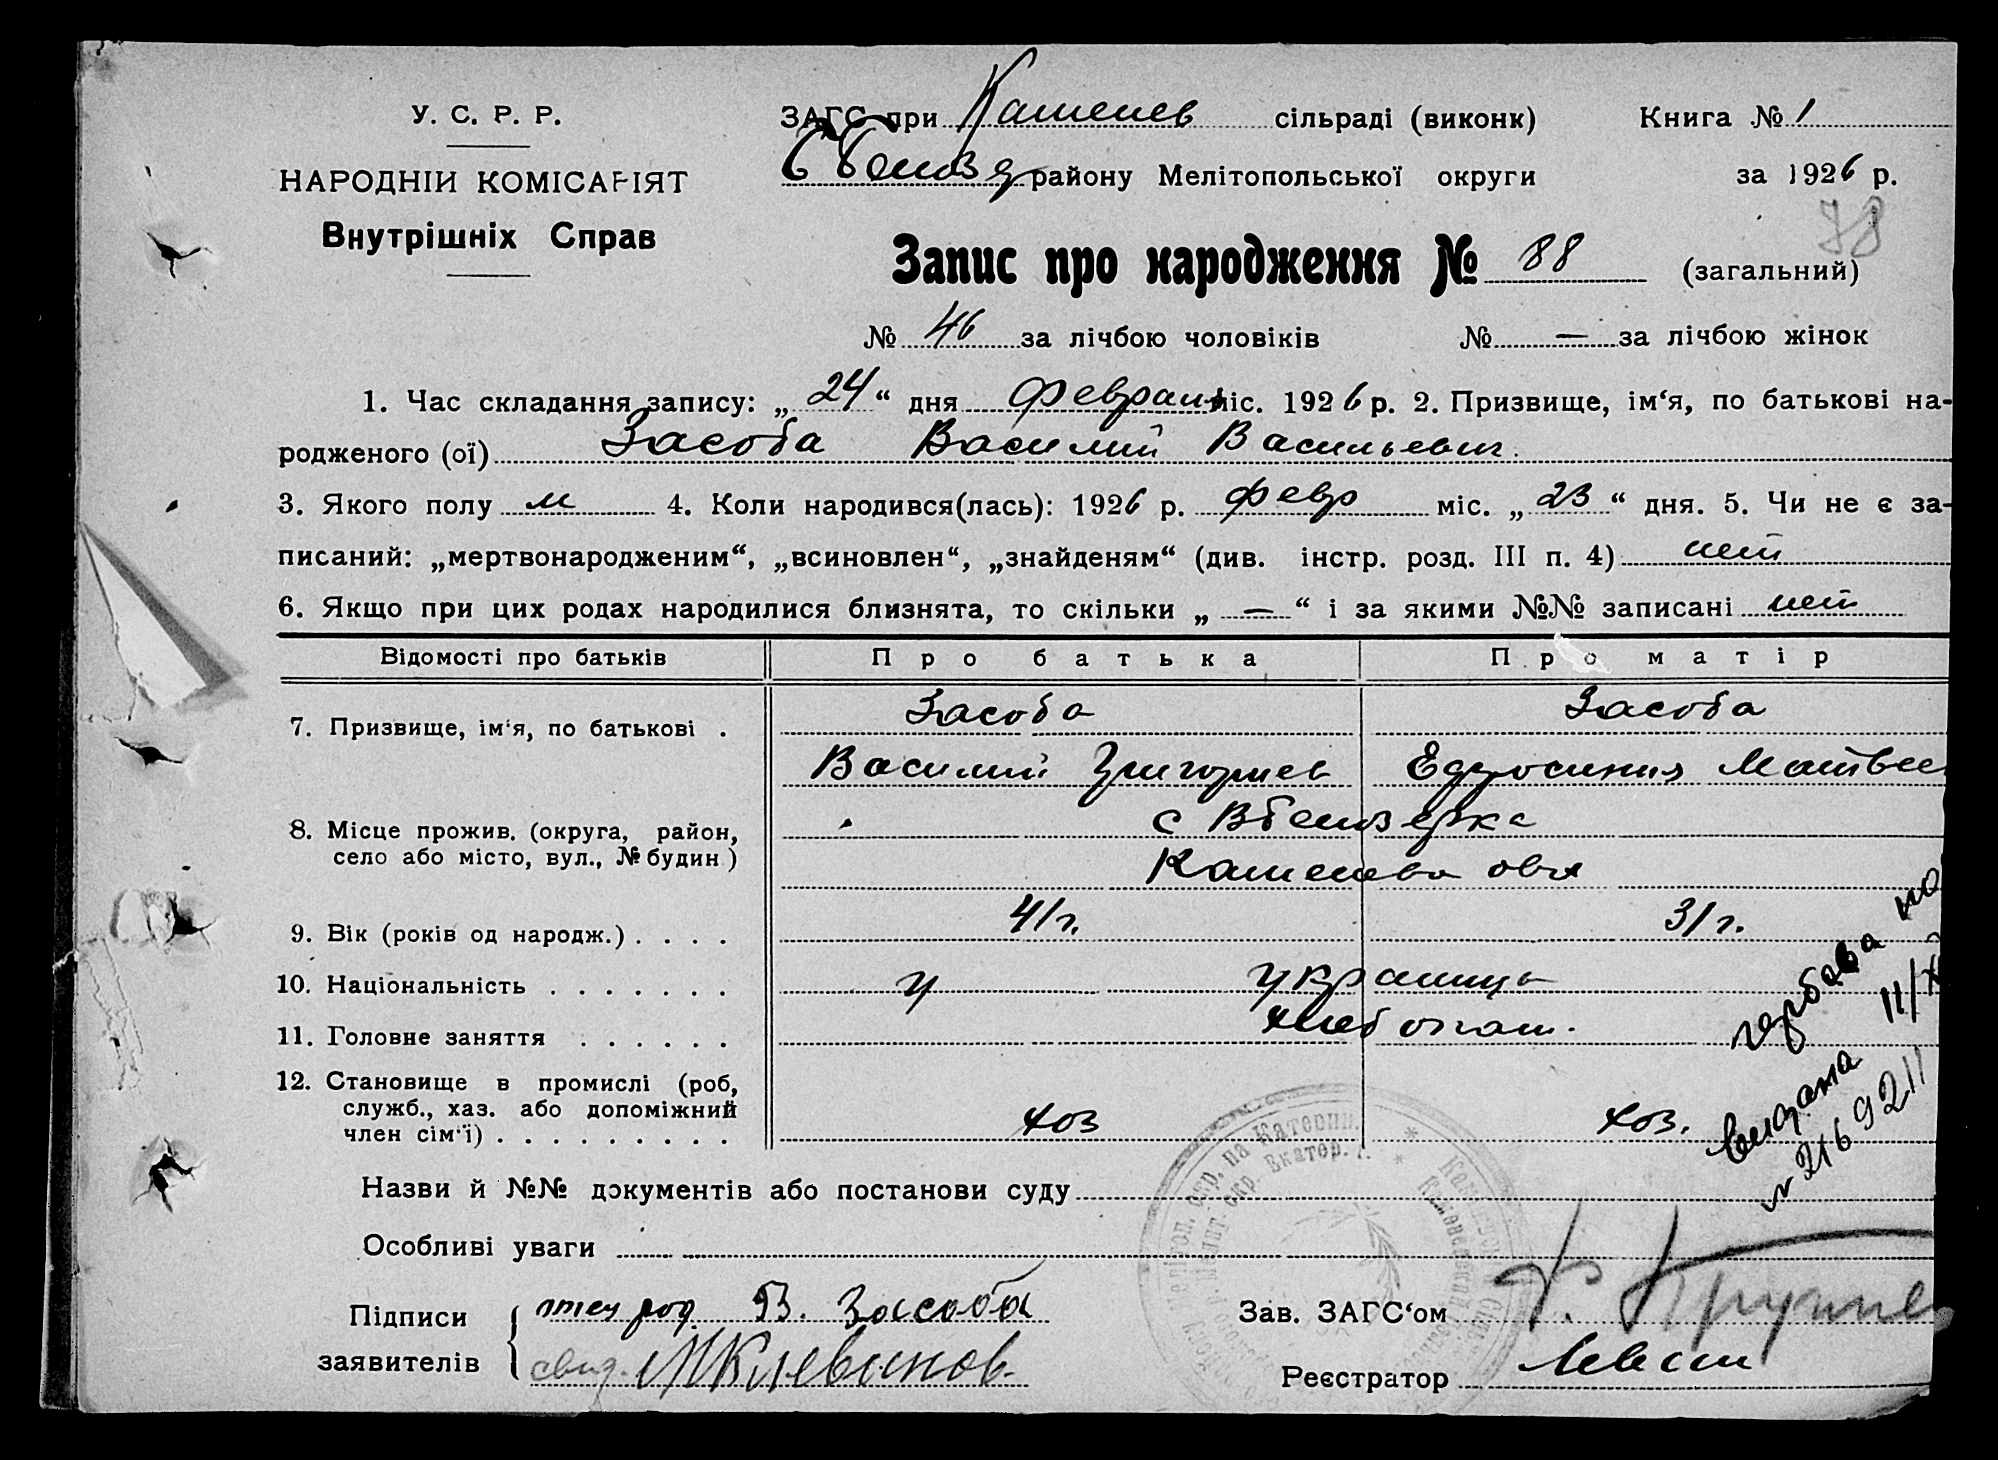 У. С. Р. Р.
НАРОДНІЙ КОМІСАРІЯТ
Внутрішніх Справ
ЗАГС при Каменев сільраді (виконк) Книга № 1
району Мелітопольської округи за 1926 р.
78
Запис про народження № 88 (загальний)
№ 46 за лічбою чоловіків № — за лічбою жінок
1. Час складання запису: „ 24 “ дня февраля міс. 1926 р. 2. Призвище, ім‘я, по батькові на-
родженого (ої) Засоба Василий Васильевич.
3. Якого полу м 4. Коли народився(лась): 1926 р. февр міс. „ 23 “ дня. 5. Чи не є за-
писаний: „мертвонародженим“, „всиновлен“, „знайденям“ (див. інстр. розд. III п. 4) нет
6. Якщо при цих родах народилися близнята, то скільки „ — “ і за якими №№ записані нет
Відомості про батьків Про батька Про матір
7. Призвище, ім‘я, по батькові . Засоба Засоба
Василий Григорьев Ефросиния Матвее
8. Місце прожив. (округа, район, с Вбелозерка
село або місто, вул., № будин)
Каменева
9. Вік (років од народж.) . . . . 41 г. 31 г.
10. Національність . . . . . . . у украинцы
11. Головне заняття . . . . . . хлебопаш.
12. Становище в промислі (роб,
служб., хаз. або допоміжний
член сім‘ї) . . . . . . . . . . хоз хоз.
гербова на
выдана 11/X
№ 2169211
Назви й №№ документів або постанови суду
Особливі уваги
Підписи отец род В. Засоба
заявителів свид.
Зав. ЗАГС‘ом
Реєстратор